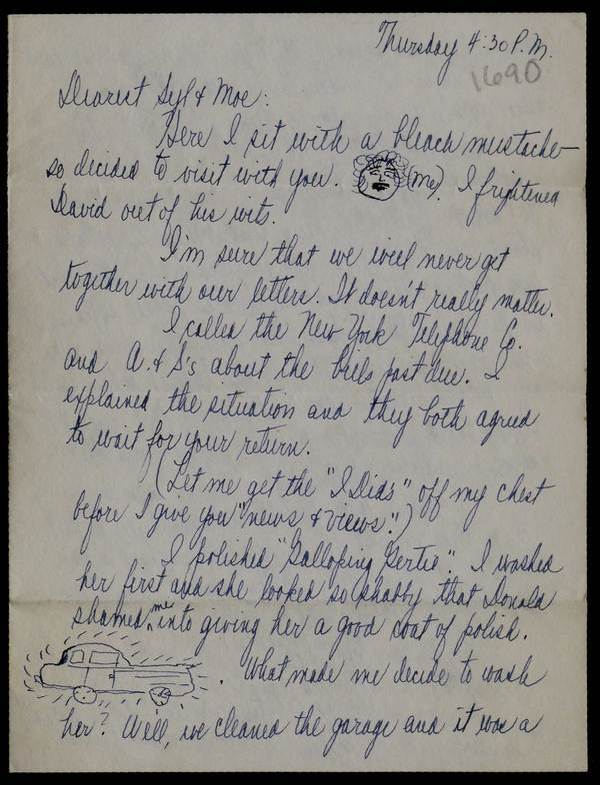 Thursday 4:30 P.M.
1690
Dearest Syl & Moe:
Here I sit with a bleach mustache –
so decided to visit with you. (me). I frightened
David out of his wits.
I'm sure that we will never get
together with our letters. It doesn't really matter.
I called the New York Telephone Co.
and A. & S's about the bills past due. I
explained the situation and they both agreed
to wait for your return.
(Let me get the "I Dids" off my chest
before I give you "news & views".)
I polished "Galloping Gertie". I washed
her first and she looked so shabby that Donald
shamed me into giving her a good coat of polish.
. What made me decide to wash
her? Well, we cleaned the garage and it was a